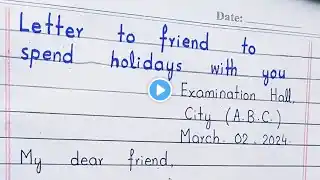 Date:
Letter to friend to
spend holidays with you
Examination Hall,
City (A.B.C.)
March. 02, 2024.
My dear friend,